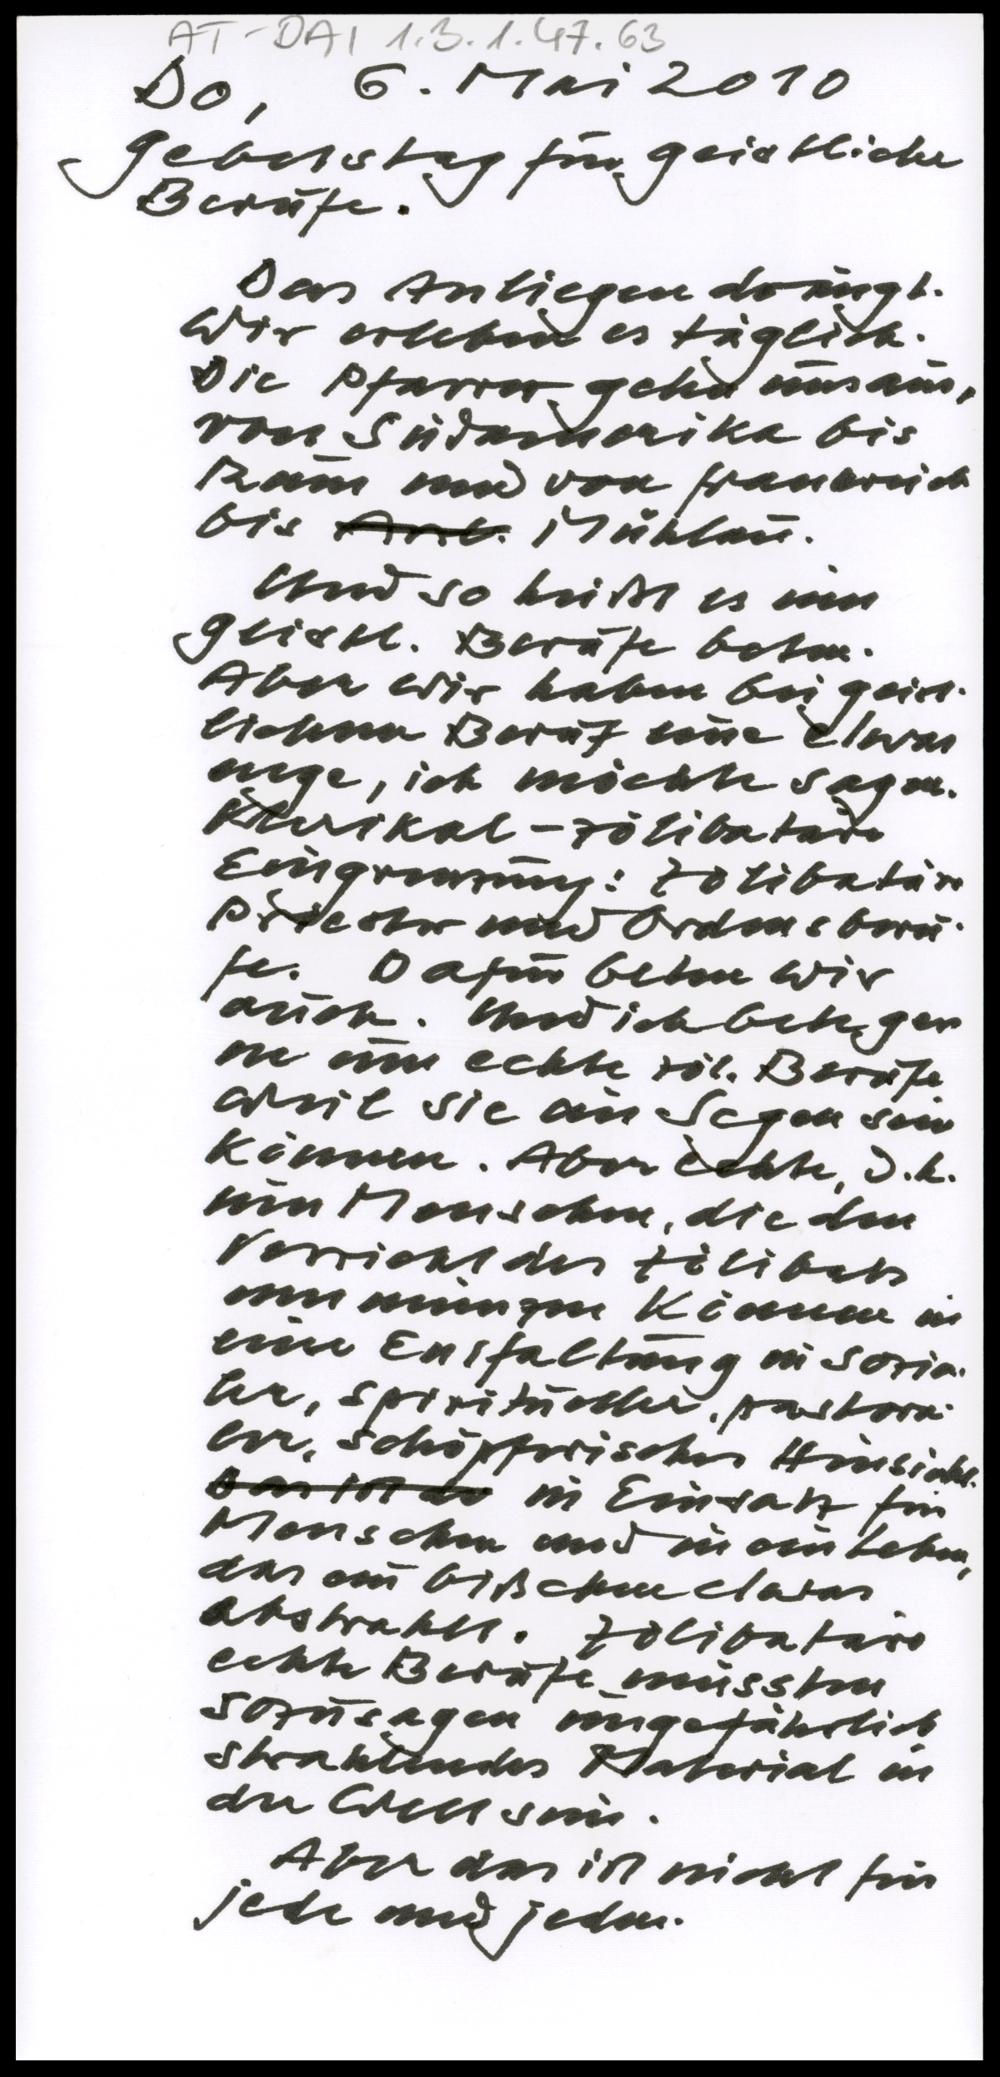 AT-DAI 1.3.1.47.63
Do, 6. Mai 2010
Gebetstag für geistliche
Berufe.
Das Anliegen drängt.
Wir erleben es täglich.
Die Pfarrer gehn uns aus,
von Südamerika bis
Rum und von Frankreich
bis Mühlau.
Und so heißt es um
geistl. Berufe beten.
Aber wir haben bei geist-
lichem Beruf eine etwas
enge, ich möchte sagen
klerikal-zölibatäre
Eingrenzung: Zölibatäre
Priester und Ordensberu-
fe. Dafür beten wir
auch. Und ich bete ger
ne um echte zöl. Berufe
weil sie ein Segen sein
können. Aber echte, d.h.
um Menschen, die den
Verzicht des Zölibats
ummünzen können in
eine Entfaltung in sozia-
ler, spiritueller, pastora-
ler, schöpferischer Hinsicht.
Das ist in Einsatz für
Menschen und in ein Leben,
das ein bißchen etwas
abstrahlt. Zölibatäre
echte Berufe müssten
sozusagen ungefährlich
strahlendes Material in
der Welt sein.
Aber das ist nicht für
jede und jeden.